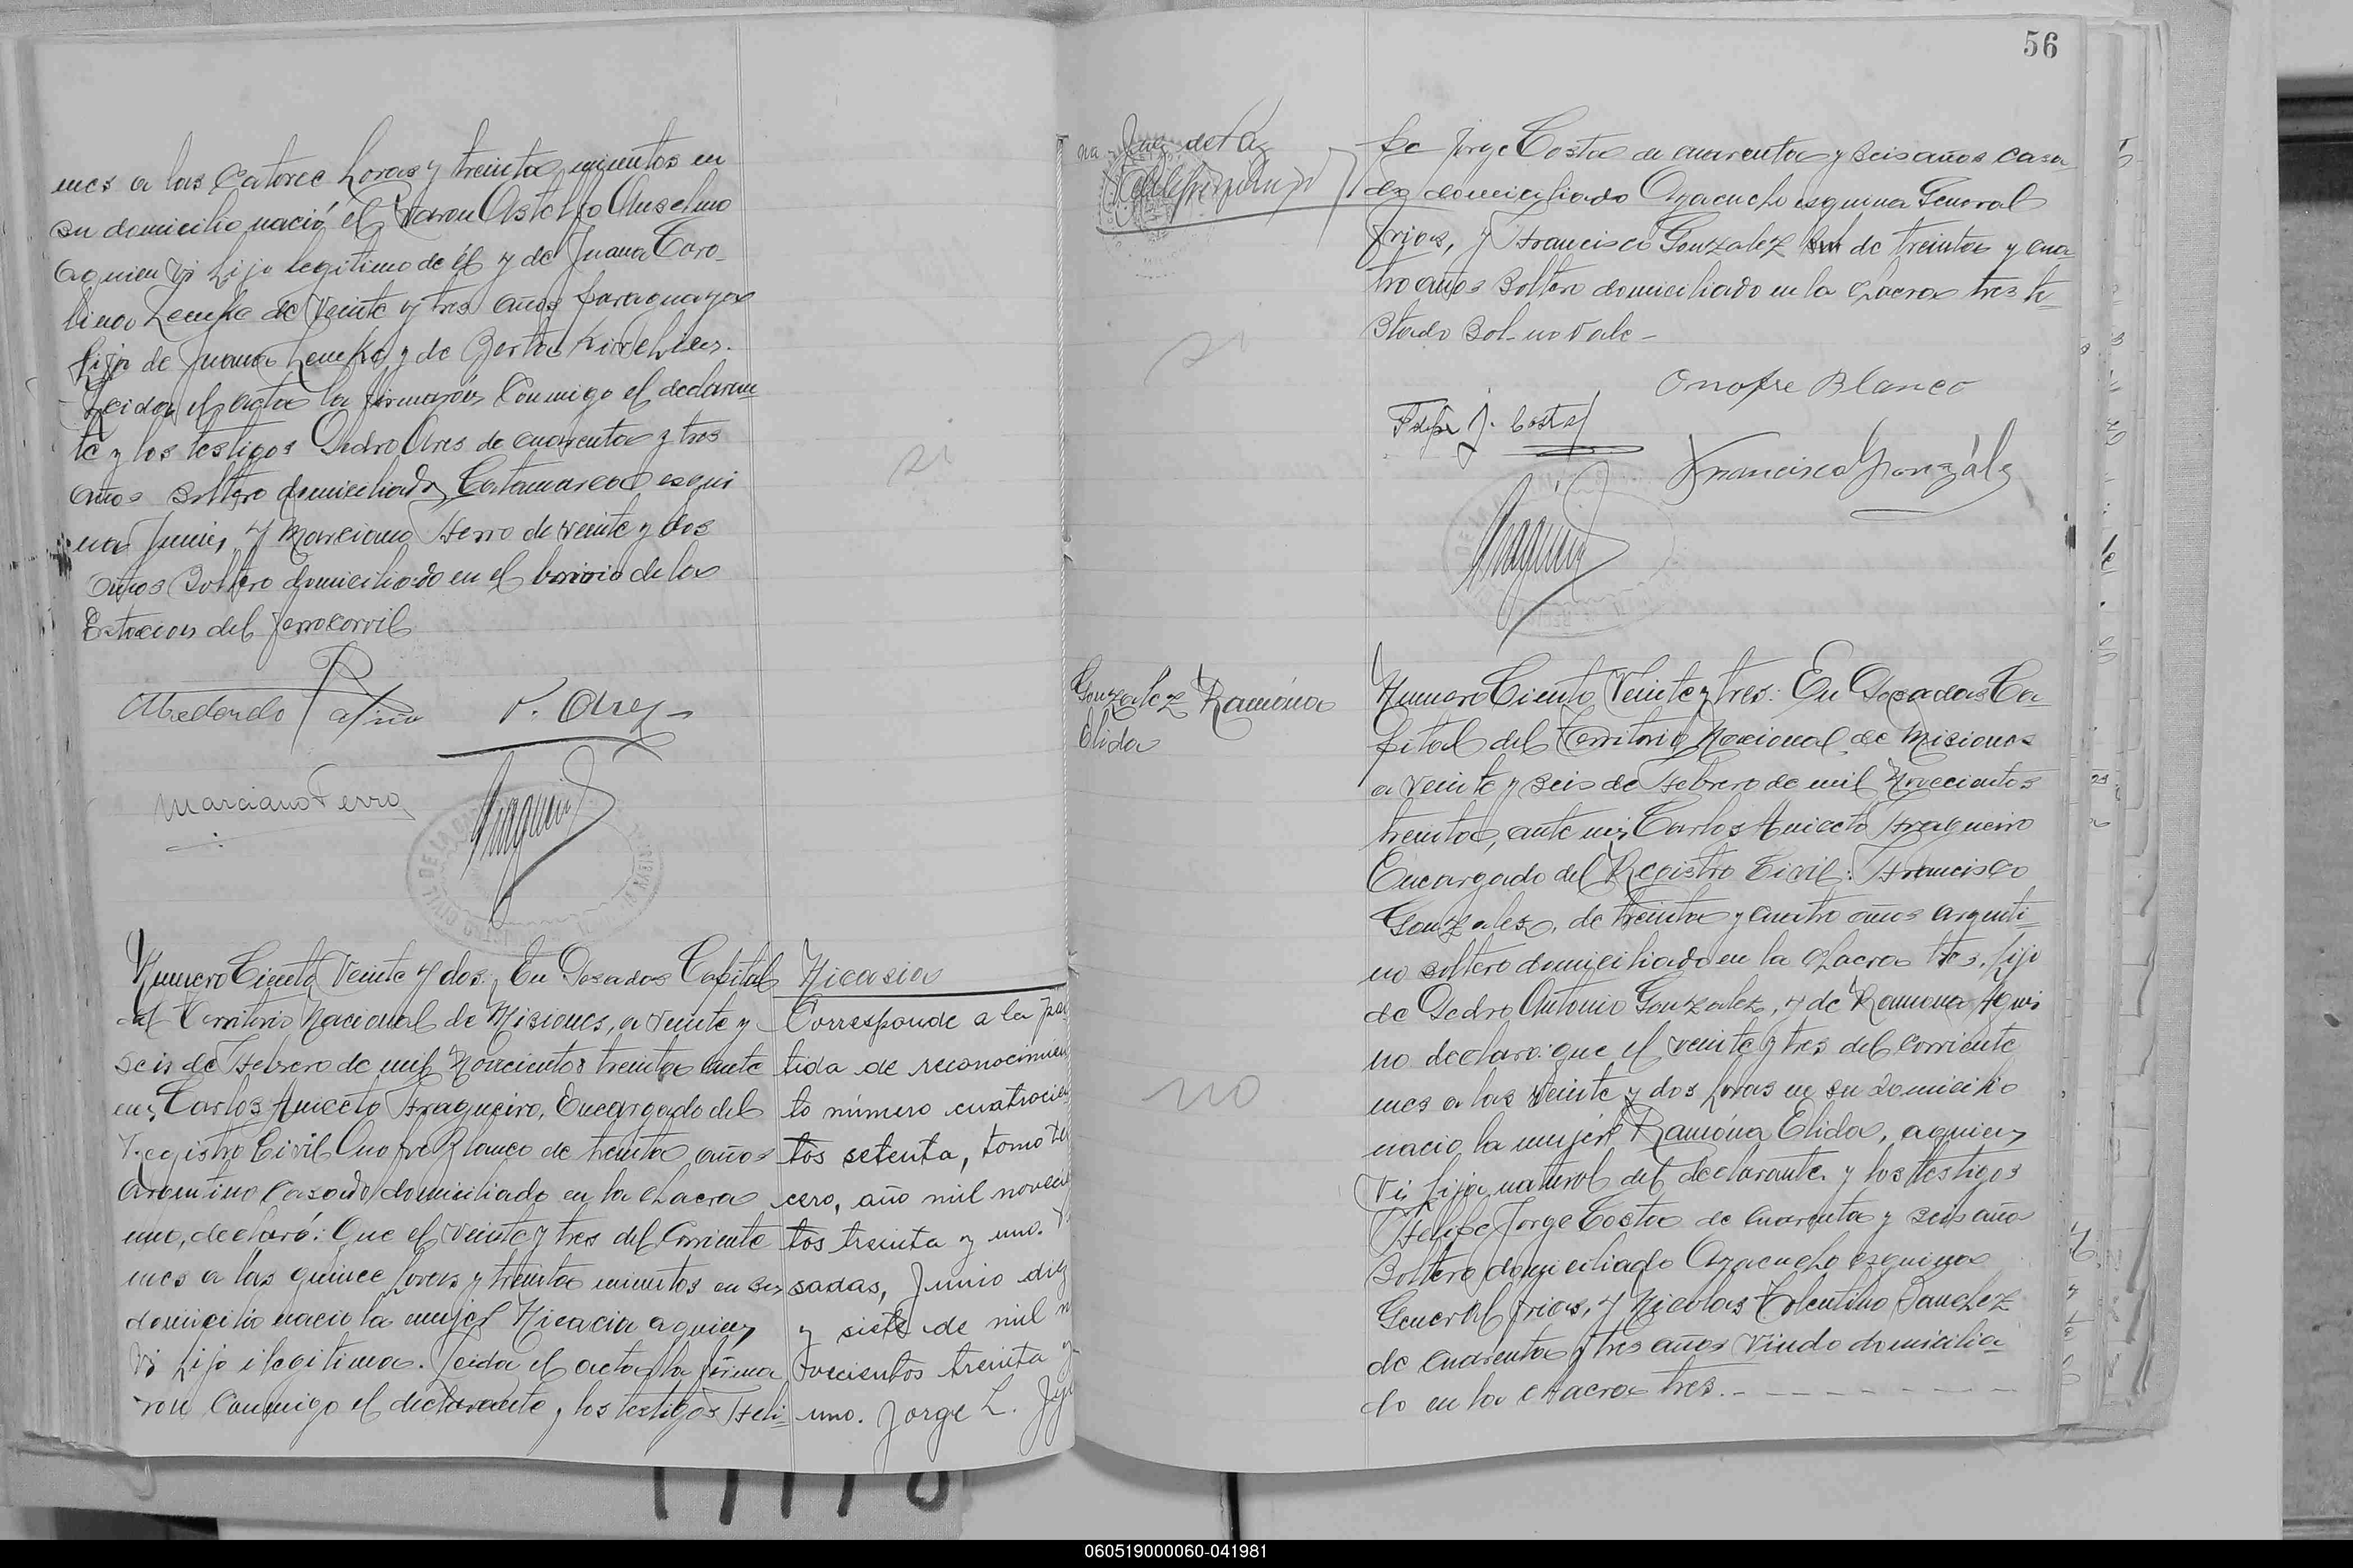 mes a las Catorce horas y treinta minutos en
su domicilio nació el varon Astolfo Anselmo
aquien vi hijo legitimo de él y de Juana Caro-
lina Lemke de Veinte y tres años paraguaya
hija de Juana Lemke y de Berta
Leida el acta la firmaron Conmigo el declaran
te y los testigos Pedro Ares de cuarenta y tres
años Soltero domiciliado Catamarca esqui
na Junin, y Marciano Ferro de veinte y dos
años Soltero domiciliado en el barrio de la
Estacion del ferrocarril
P. Ares
Marciano Ferro
Numero Ciento Veinte y dos. En Posadas Capital
del Territorio Nacional de Misiones, a veinte y
seis de Febrero de mil Novecientos treinta ante
mi, Carlos Aniceto Fragueiro, Encargado del
Registro Civil Onofre Blanco de treinta años
Argentino Casado domiciliado en la chacra
uno, declaró: Que el veinte y tres del Corriente
mes a las quince horas y treinta minutos en su
domicilio nacio la mujer Nicacia aquien
vi hija ilegitima. Leida el acta la firma
ron Conmigo el declarante, los testigos Feli-
Nicasia
Corresponde a la par
tida de reconocimien
to número cuatrocien
tos setenta, tomo ter
cero, año mil novecien
tos treinta y uno. Po
sadas, Junio diez
y siete de mil no
vecientos treinta y
uno. Jorge L.
56
Juez de Paz
pe Jorge Costa de cuarenta y seis años casa
do domiciliado Ayacucho esquina General
Frias, y Francisco Gonzalez Sol de treinta y cua
tro años Soltero domiciliado en la chacra tres te-
stado Sol-no vale-
Onofre Blanco
Felipe J. Costa
Francisco González
si
si
Gonzalez Ramóna
Elida
no
Numero Ciento Veinte y tres: En Posadas Ca-
pital del Territorio Nacional de Misiones
a veinte y seis de Febrero de mil Novecientos
treinta, ante mi, Carlos Aniceto Fragueiro
Encargado del Registro Civil: Francisco
Gonzalez, de treinta y cuatro años argenti-
no soltero domiciliado en la chacra tres, hijo
de Pedro Antonio Gonzalez, y de Ramona Aqui
no declaro: que el veinte y tres del corriente
mes a las veinte y dos horas en su domicilio
nacio la mujer Ramóna Elida, aquien
vi hija natural del declarante, y los testigos
Felipe Jorge Costa de cuarenta y seis años
Soltero domiciliado Ayacucho esquina
General Frias, y Nicolas Tolentino Sanchez
de cuarenta y tres años Viudo domicilia-
do en la chacra tres.
060519000060-041981